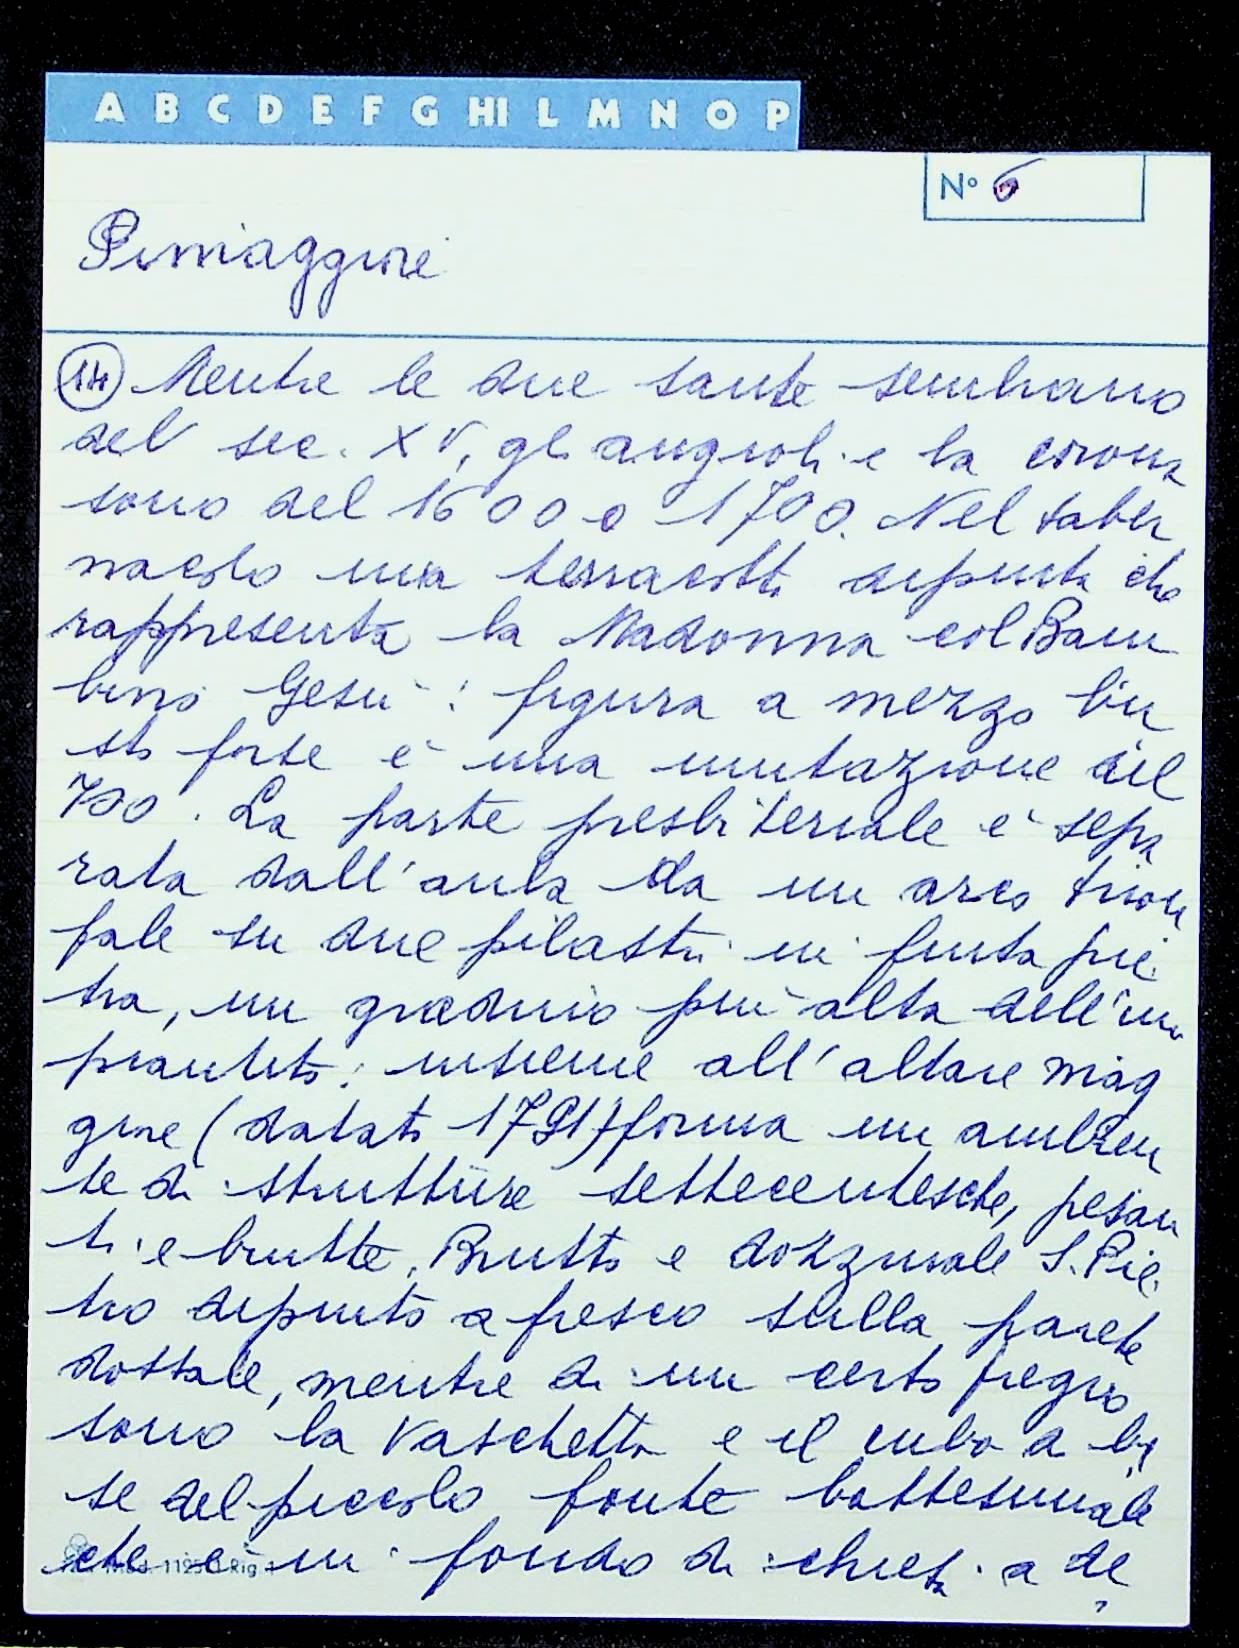 A B C D E F G HI L M N O P
N° 6
Pimaggiore
14 Mentre le due sante sembrano
del sec. XV, gli angioli e la corona
sono del 1600 o 1700. Nel taber
nacolo una terracotta dipinta che
rappresenta la Madonna col Bam
bino Gesù: figura a mezzo bu
sto forse è una imitazione del
700. La parte presbiteriale è sepa
rata dall'aula da un arco trion
fale su due pilastri in finta pie
tra, un gradino più alta dell'im
piantito: insieme all'altare mag
giore (datato 1791) forma un ambien
te di strutture settecentesche, pesan
ti e brutte. Brutto e dozzinale S. Pie
tro dipinto a fresco sulla parete
dossale, mentre di un certo fregio
sono la vaschetta e il cubo a ba
se del piccolo fonte battesimale
che è in fondo di chiesa a de
Mod. 1125 Rig.